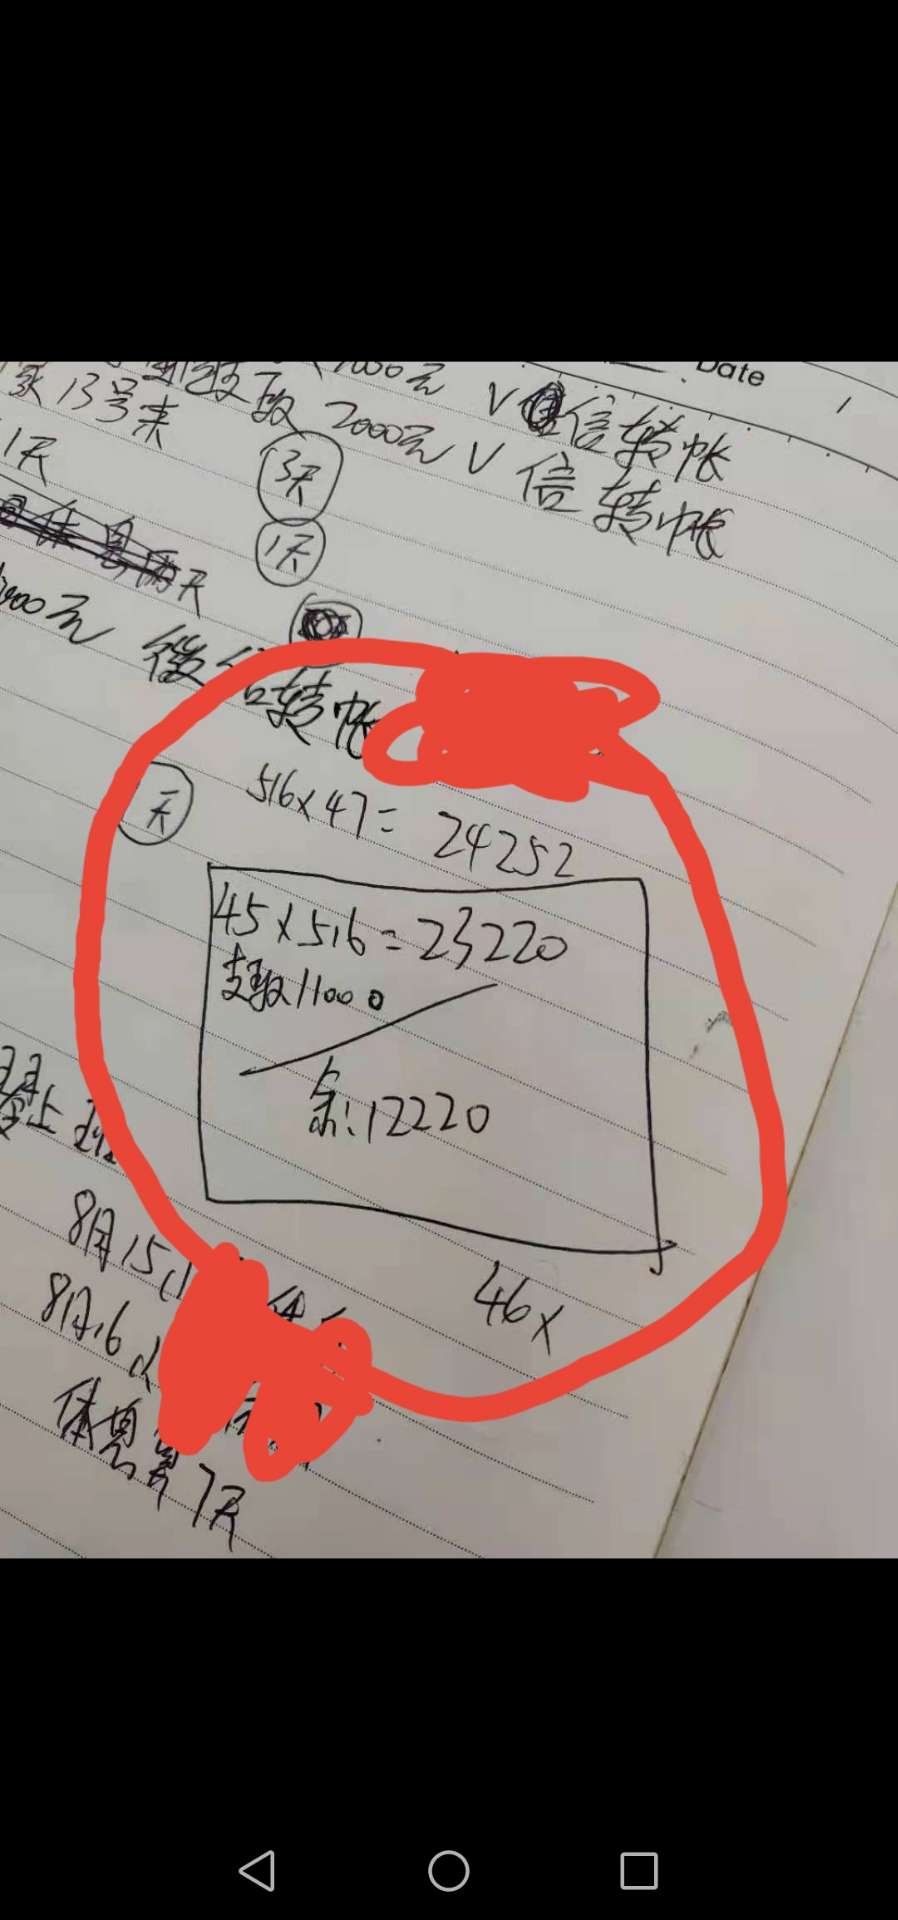 Date
1000元 V 信转帐
支取 2000元 V 信转帐
13号来
3天
1天
1天
息两天
00元 微信转帐
516×47=24252
天
45×516=23220
支取11000
余:12220
46×
8月15
8月16
休息算7天